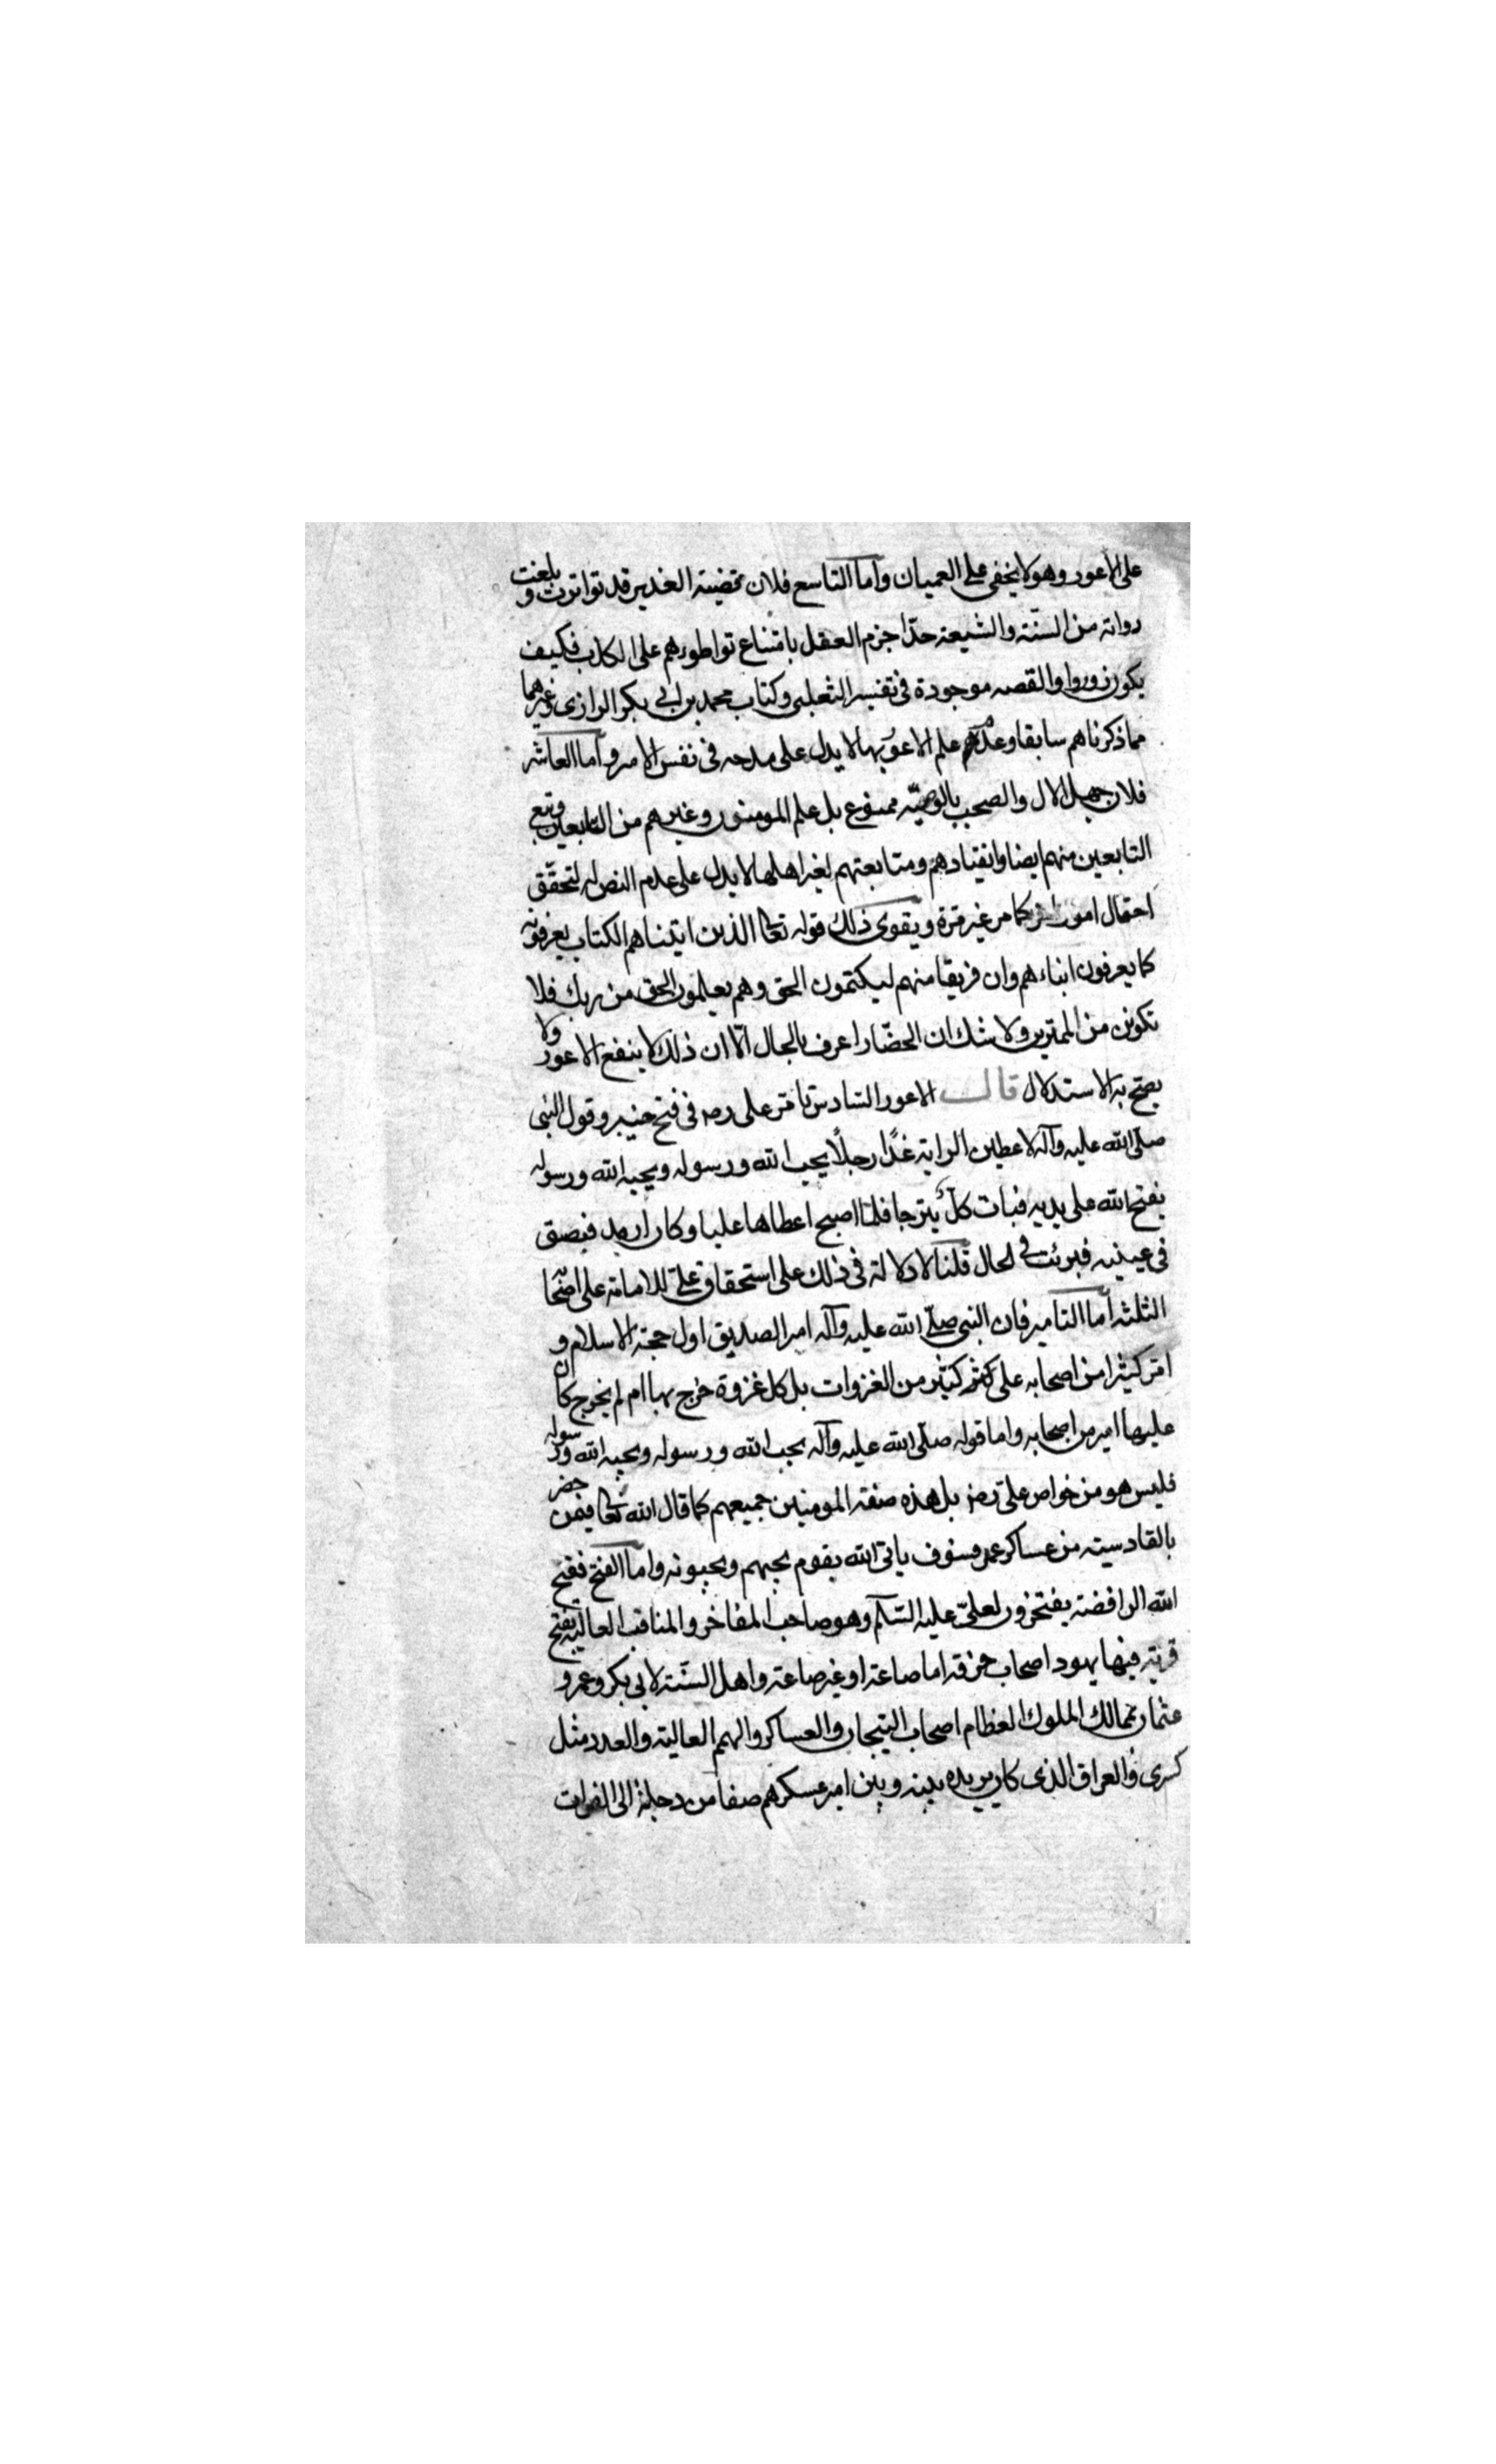 على الاعور وهو لا يخفى على العميان واما التاسع فلان قضية الغدير قد تواترت و بلغت
رواته من السنة والشيعة حدا جزم العقل بامتناع تواطؤهم على الكذب فكيف
يكون زورا والقصه موجودة في تفسير الثعلبي وكتاب محمد بن ابي بكر الرازي وغيرهما
مما ذكرناهم سابقا وعدم علم الاعور بها لا يدل على مدحه في نفس الامر واما العاشر
فلان جهل الال والصحب بالوصية ممنوع بل علم المومنون وغيرهم من التابعين وتبع
التابعين منهم ايضا وانقيادهم ومتابعتهم لغير اهلها لا يدل على عدم النص له لتحقق
احتمال امور اخر كما مر غير مرة ويقوى ذلك قوله تعالى الذين اتيناهم الكتاب يعرفونه
كما يعرفون ابناءهم وان فريقا منهم ليكتمون الحق وهم يعلمون الحق من ربك فلا
تكونن من الممترين ولا شك ان الحضار اعرف بالحال الا ان ذلك لا ينفع الاعور ولا
يصح به الاستدلال قال الاعور السادس تامر على رض في فتح خيبر وقول النبي
صلى الله عليه وآله لاعطين الراية غدا رجلا يحب الله ورسوله ويحبه الله ورسوله
يفتح الله على يديه فبات كل يترجا فلما اصبح اعطاها عليا وكان ارمد فبصق
في عينيه فبرئت في الحال قلنا لا دلالة في ذلك على استحقاق علي للامامة على اصحابه
الثلثه اما التامير فان النبي صلى الله عليه وآله امر الصديق اول حجة الاسلام و
امر كثيرا من اصحابه على كثير من الغزوات بل كل غزوة خرج بها ام لم يخرج كان
عليها امير من اصحابه واما قوله صلى الله عليه وآله يحب الله ورسوله ويحبه الله ورسوله
فليس هو من خواص علي رض بل هذه صفة المومنين جميعهم كما قال الله تعالى فيمن حضر
بالقادسية من عساكر عمر فسوف ياتي الله بقوم يحبهم ويحبونه واما الفتح ففتح
الله الرافضة يفتخرون لعلي عليه السلام وهو صاحب المفاخر والمناقب العالية بفتح
قرية فيها يهود اصحاب حرفة اما صاعة او غير صاعة واهل السنة لابي بكر وعمر و
عثمان بممالك الملوك العظام اصحاب التيجان والعساكر والهمم العالية والعدد مثل
كسرى والعراق الذي كان بريده بينه وبين امير عسكرهم صفا من دجلة الى الفرات